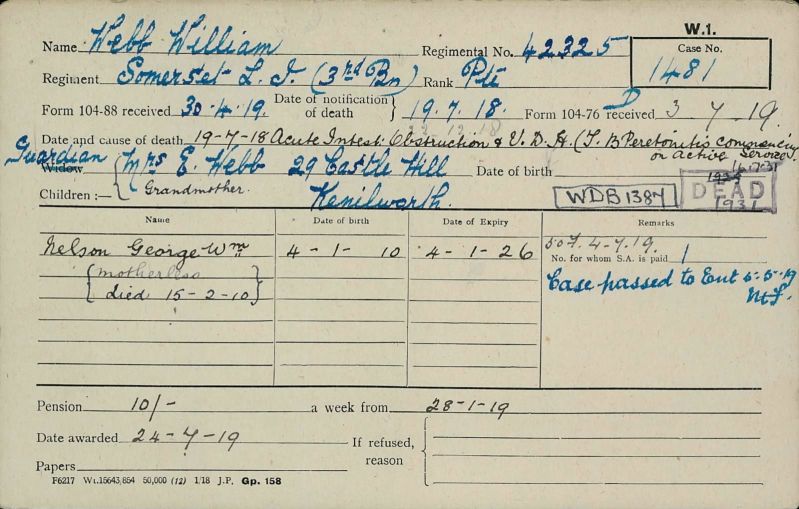 W.1.
Name Webb William Regimental No. 42325 Case No. 1481
Regiment Somerset L. I. (3rd Bn) Rank Pte
Form 104-88 received 30.4.19. Date of notification of death } 19.7.18. Form 104-76 received 3 7 19. D
Date and cause of death 19-7-18 Acute Intest. Obstruction & V.D.H. (T.B Peretonitis commencing
on Active Service).
Guardian
Widow { Mrs E. Webb 29 Castle Hill Date of birth
Children :— Grandmother. Kenilworth.
WDB1384 DEAD 1931
Name Date of birth Date of Expiry Remarks
Nelson George Wm 4-1-10 4-1-26
{ motherless
died 15-2-10 }
507. 4-7.19.
No. for whom S.A. is paid 1
Case passed to Ent 5.5.19
Pension 10/- a week from 28-1-19
Date awarded 24-7-19 If refused, reason
Papers
F6217 Wt.15643,854 50,000 (12) 1/18 J.P. Gp. 158